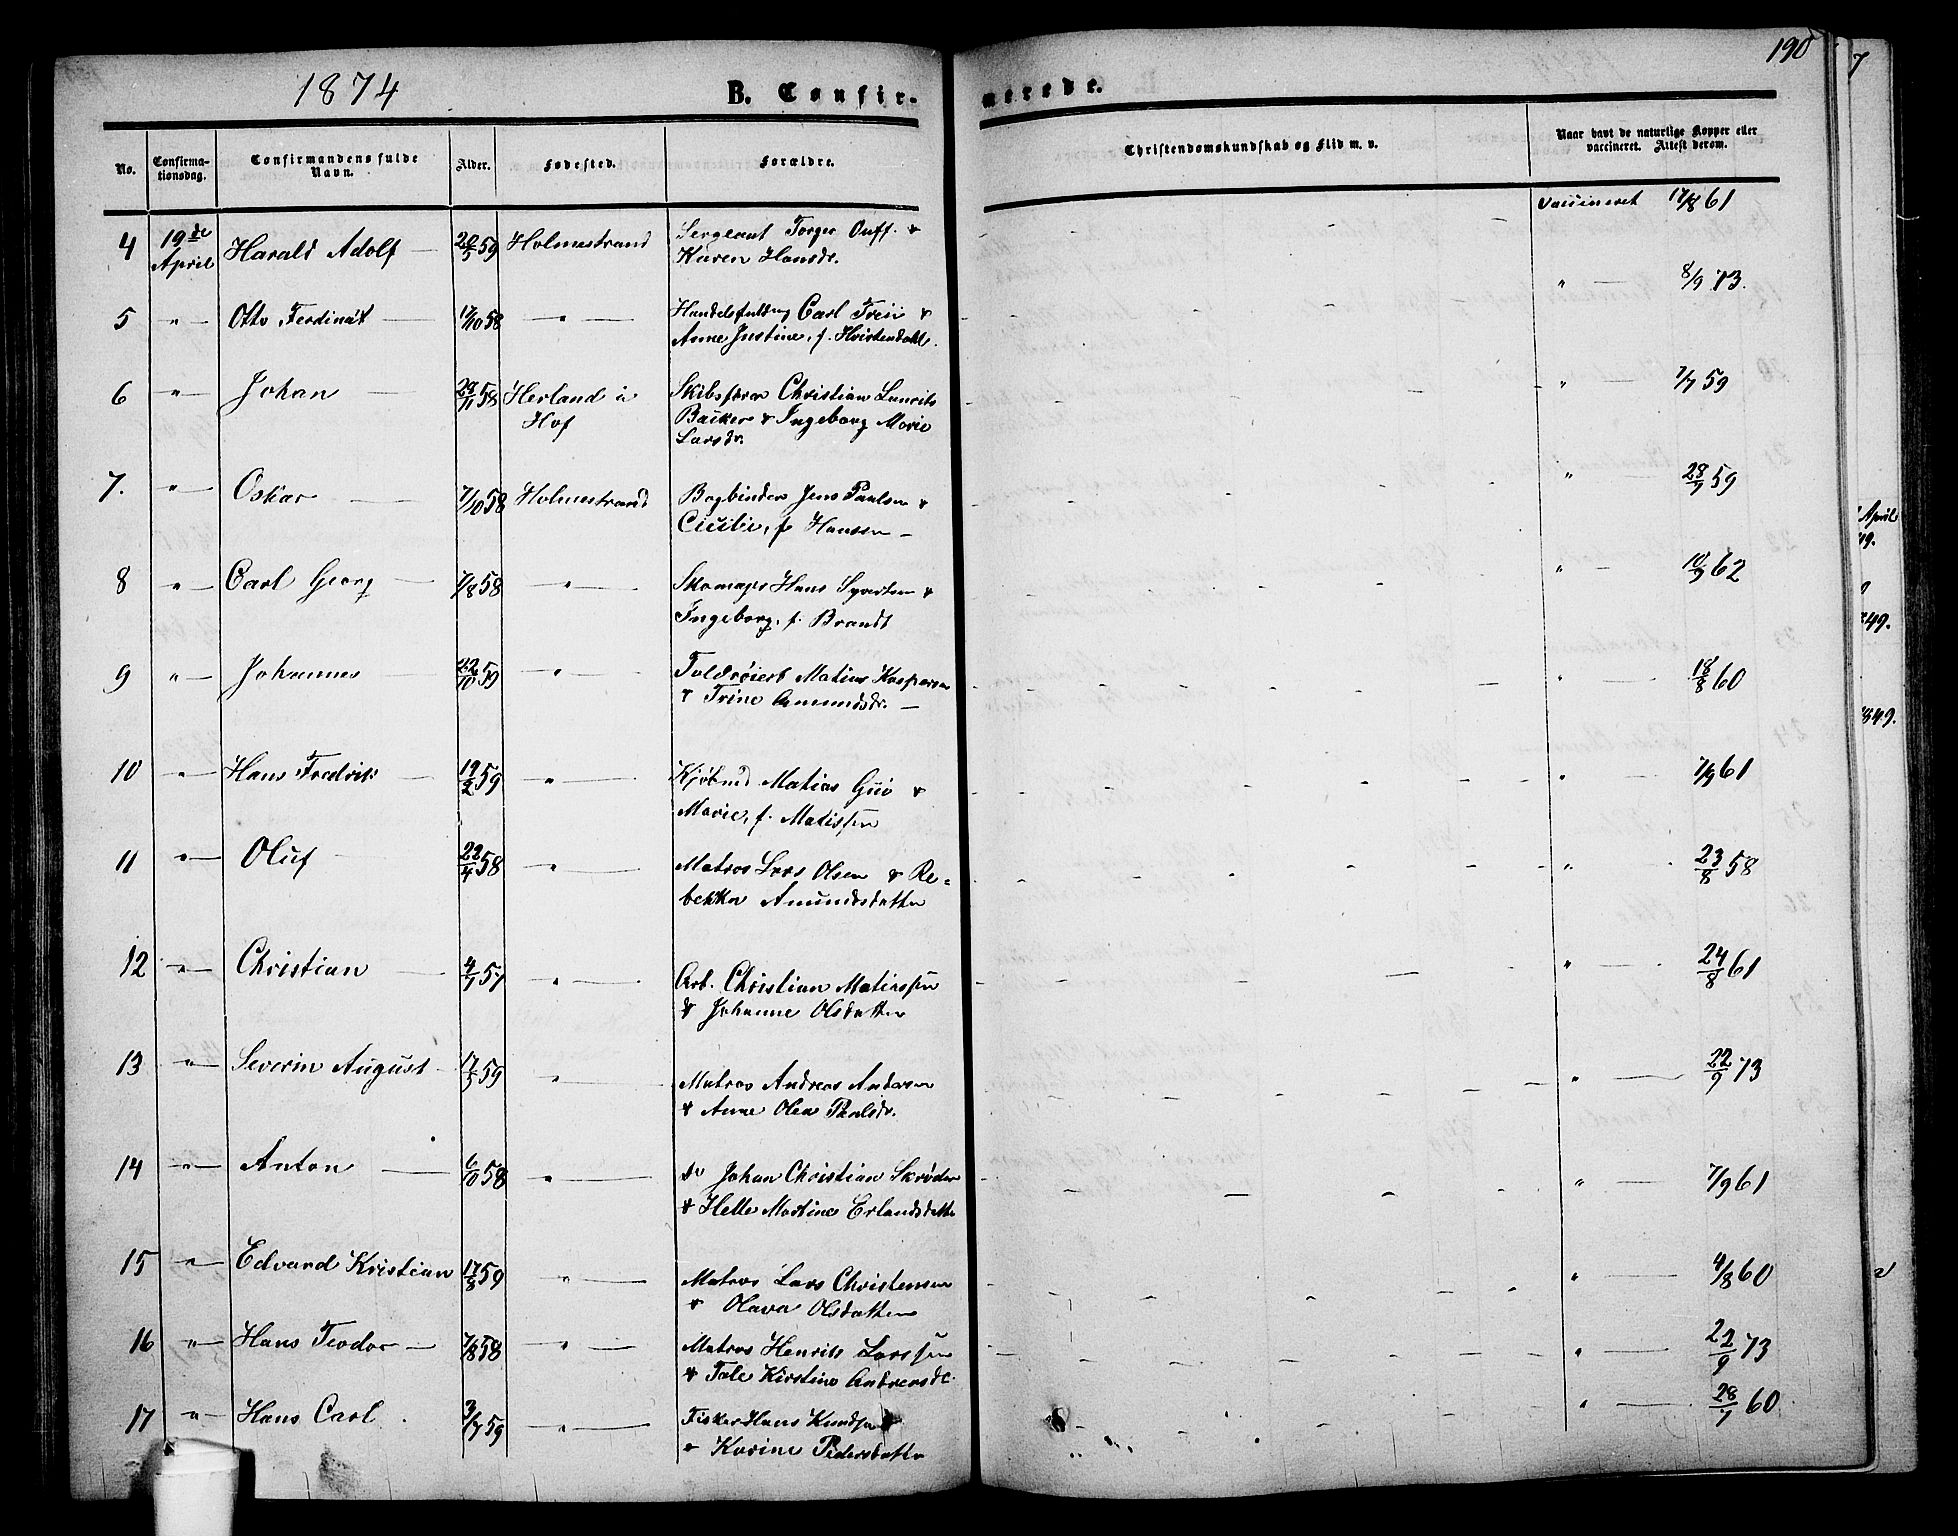 1874
B. Confir-
merede.
190
No.
Confirma-
tionsdag.
Confirmandens fulde
Navn.
Alder.
Fødested.
Forældre.
Christendomskundskab og Flid m. v.
Naar havt de naturlige Kopper eller
vaccineret. Attest derom.
4 19de April Harald Adolf — 59 Holmestrand Sergeant Torger &
Karen Hansdr. Vaccineret 17/8 61
5 " — Otto Ferdinat — 17/10 58 — " — Carl &
Anne Justine, f. " 8/9 73.
6 " — Johan — 58 Herland i
Hof Christian
& Ingeborg Marie
Larsdr. " — 7/7 59
7. " — Oskar — 7/10 58 Holmestrand Bogbinder Jens Paulsen &
Cicilie, f Hansen — " — 28/9 59
8 " — Carl Georg — 7/8 58 " — Skomager Hans Syvertsen &
Ingeborg, f. Brandt " — 10/9 62
9 " — Johannes — 22/10 59 " — Matias Kaspersen
& Trine Amundsdr. — " — 18/8 60
10 " — Hans Fredrik — 19/2 59 " — Kjøbmd Matias &
Marie, f. Matissen " — 7/9 61
11 " — Oluf — 22/4 58 " — Matros Lars Olsen & Re=
bekka Amundsdatter " — 23/8 58
12 " — Christian — 4/7 57 " — Arb. Christian Matiassen
& Johanne Olsdatter " — 24/8 61
13 " — Severin August — 17/5 59 " — Matros Andreas Andersen
& Anne Olea Paulsdr. " — 22/9 73
14 " — Anton — 6/10 58 " — do Johan Christian Skrøder
& Helle Martine Erlandsdatter " — 7/9 61
15 " — Edvard Kristian 17/8 59 " — Matros Lars Christensen
& Olava Olsdatter " — 4/8 60
16 " — Hans Teodor — 7/8 58 " — Matros Henrik Larssen
& Tale Kirstine Andreasdr. " — 22/9 73
17 " — Hans Carl. 3/7 59 " — Fisker Hans Knudsen
& Karine Pedersdatter " — 28/7 60
7
April
49.
49.
1849.